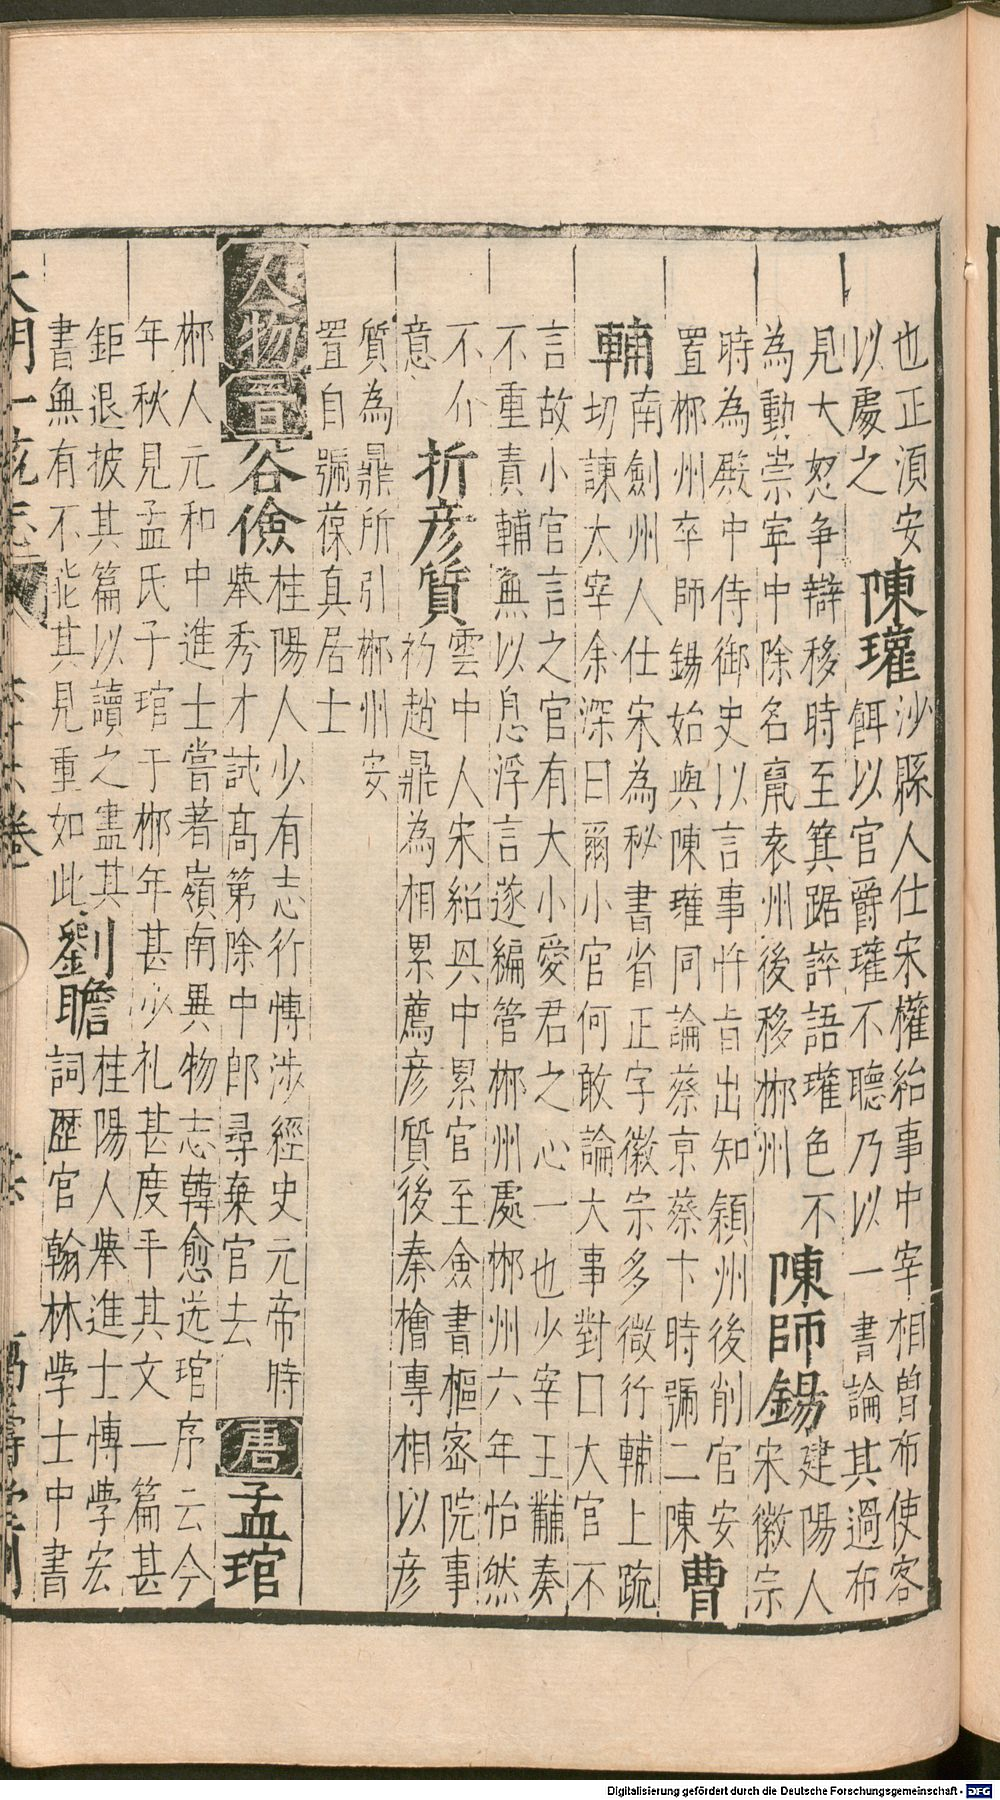 也正湏安
以處之
陳瓘
沙縣人仕宋權給事中宰相曾布使客
餌以官爵瓘不聽乃以一書論其過布
見大怒争辯移時至箕踞誶語瓘色不
為動崇寧中除名竄袁州後移郴州
陳師錫
建陽人
宋徽宗
時為殿中侍御史以言事忤旨出知穎州後削官安
置郴州卒師錫始與陳瓘同論蔡京蔡卞時號二陳
曹
輔
南劍州人仕宋為秘書省正字徽宗多微行輔上疏
切諫太宰余深曰爾小官何敢論大事對曰大官不
言故小官言之官有大小愛君之心一也少宰王黼奏
不重責輔無以息浮言遂編管郴州處郴州六年怡然
不介
意
折彦質
雲中人宋紹興中累官至僉書樞宻院事
初趙鼎為相累薦彦質後秦檜專相以彦
質為鼎所引郴州安
置自號葆真居士
人物
晉
谷儉
桂陽人少有志行博涉經史元帝時
舉秀才試高第除中郎尋棄官去
唐
孟琯
郴人元和中進士嘗著嶺南異物志韓愈送琯序云今
年秋見孟氏子琯于郴年甚少礼甚度手其文一篇甚
鉅退披其篇以讀之盡其
書無有不能其見重如此
劉瞻
桂陽人舉進士博學宏
詞歷官翰林學士中書